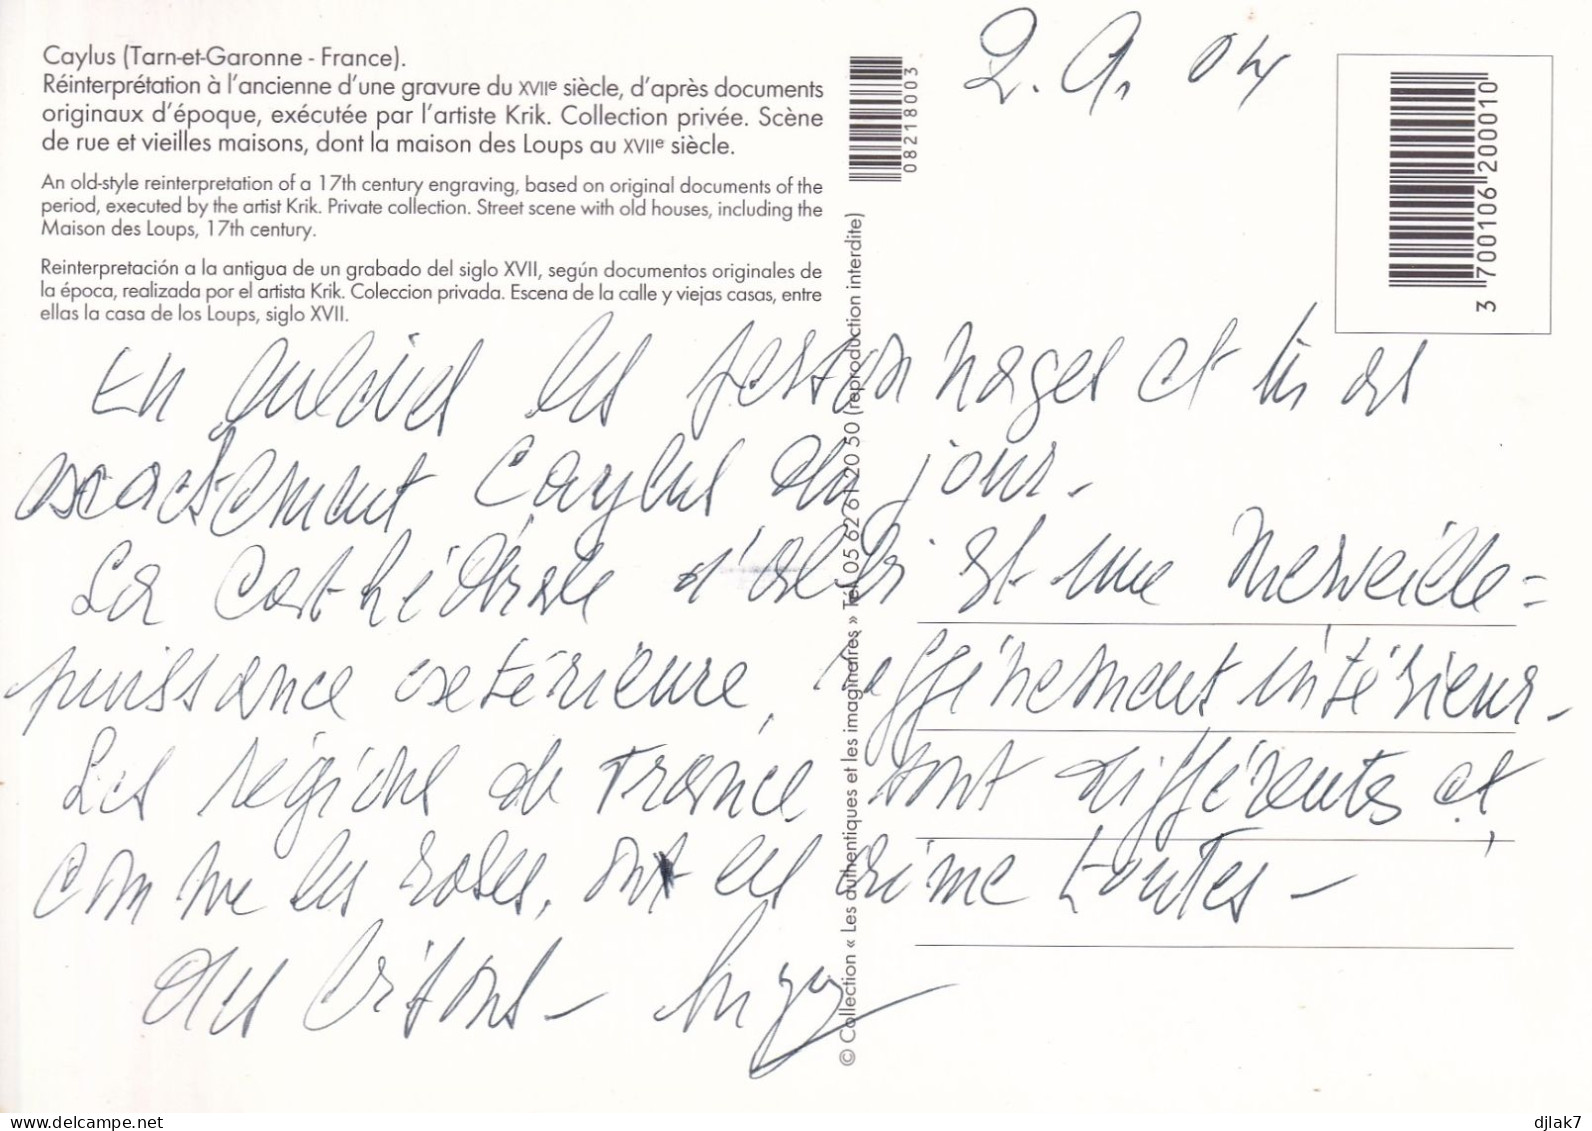 Caylus (Tarn-et-Garonne - France).
Réinterprétation à l'ancienne d'une gravure du XVIIe siècle, d'après documents
originaux d'époque, exécutée par l'artiste Krik. Collection privée. Scène
de rue et vieilles maisons, dont la maison des Loups au XVIIe siècle.
An old-style reinterpretation of a 17th century engraving, based on original documents of the
period, executed by the artist Krik. Private collection. Street scene with old houses, including the
Maison des Loups, 17th century.
Reinterpretación a la antigua de un grabado del siglo XVII, según documentos originales de
la época, realizada por el artista Krik. Coleccion privada. Escena de la calle y viejas casas, entre
ellas la casa de los Loups, siglo XVII.
08218003
2.9.04
3 700106 200010
© Collection « Les authentiques et les imaginaires » Tél. 05 62 61 20 50 (reproduction interdite)
En les personnages et tu as
exactement Caylus du jour.
La Cathédrale d'Albi est une merveille =
puissance extérieure, raffinement intérieur.
Les régions de France sont différentes et,
comme les roses, on les aime toutes -
djlak7